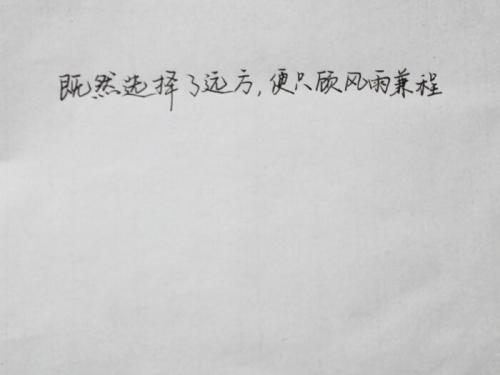 既然选择了远方,便只顾风雨兼程